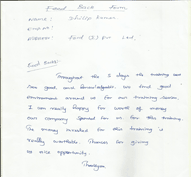 Feed Back Form
Name :
Email :
Address : Ford
Feed Back :
Throughout the 2 days the training was
good and knowledgable. We find good
environment around us for our training session.
I am really happy for worth of money
our company spend for us for this training.
The money invested for this training is
really worthable. Thanks for giving
us nice opportunity.
Thankyou